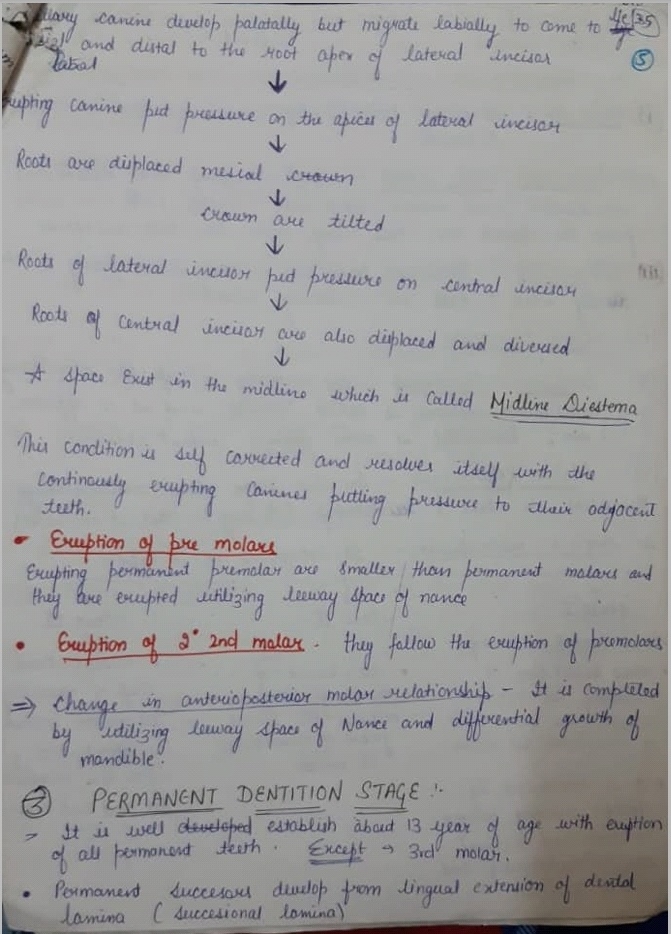 canine develop palatally but migrate labially to come to
and distal to the root apex of lateral incisor
labial
5
35
erupting canine put pressure on the apices of lateral incisor
↓
Roots are displaced mesial crown
↓
crown are tilted
↓
Roots of lateral incisor put pressure on central incisor
↓
Roots of central incisor are also displaced and diversed
↓
A space Exist in the midline which is called Midline Diestema
This condition is self corrected and resolves itself with the
continously erupting canines putting pressure to their adjacent
teeth.
• Eruption of pre molars
Erupting permanent premolar are smaller than permanent molars and
they are erupted utilizing leeway space of nance
• Eruption of 2° 2nd molar. they follow the eruption of premolars
⇒ Change in anterioposterior molar relationship - It is completed
by utilizing leeway space of Nance and differential growth of
mandible.
③ PERMANENT DENTITION STAGE :-
> It is well developed establish about 13 year of age with eruption
of all permanent teeth. Except → 3rd molar.
• Permanent succesors develop from lingual extension of dental
lamina (succesional lamina)